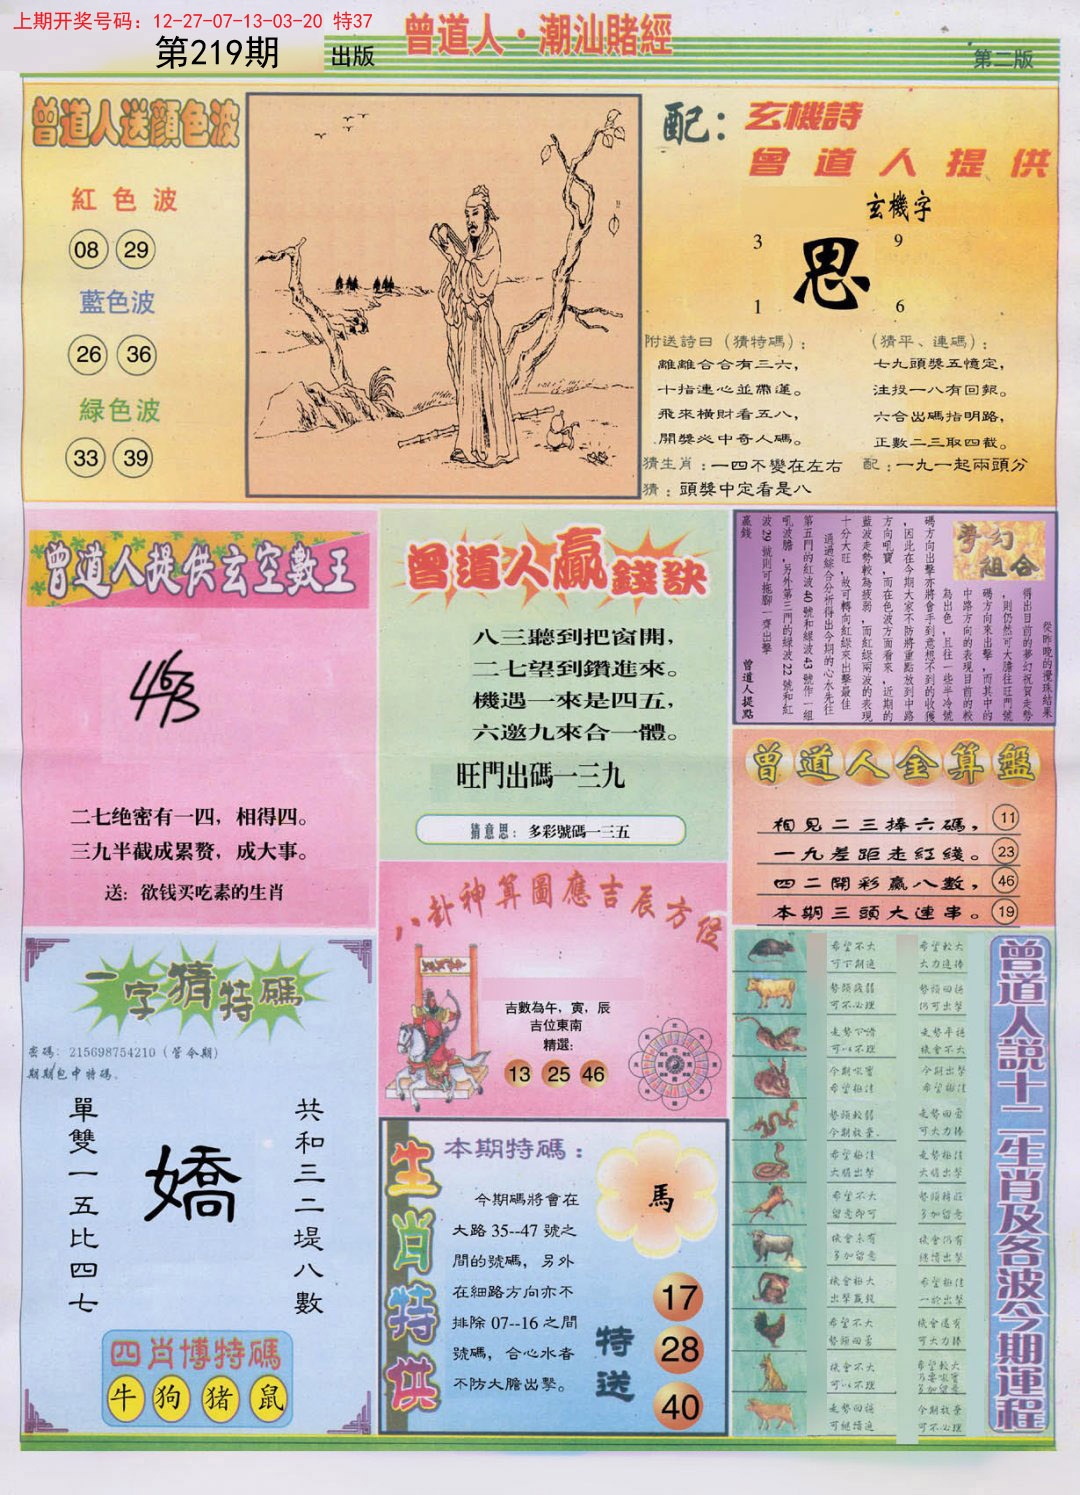 上期开奖号码：12-27-07-13-03-20 特37
第219期 出版
曾道人·潮汕賭經
第二版
曾道人送顏色波
紅色波
08 29
藍色波
26 36
緑色波
33 39
配：玄機詩
曾道人提供
玄機字
3 9
思
1 6
附送詩曰（猜特碼）；
離離合合有三六，
十指連心並帶運。
飛來橫財看五八，
開獎必中奇人碼。
（猜平、連碼）；
七九頭獎五憶定，
注投一八有回報。
六合出碼指明路，
正數二三取四截。
猜生肖：一四不變在左右
配：一九一起兩頭分
猜：頭獎中定看是八
曾道人提供玄空數王
463
二七绝密有一四，相得四。
三九半截成累赘，成大事。
送：欲钱买吃素的生肖
曾道人贏錢訣
八三聽到把窗開，
二七望到鑽進來。
機遇一來是四五，
六邀九來合一體。
旺門出碼一三九
猜意思：多彩號碼一三五
夢幻組合
從昨晚的攪珠結果
得出目前的夢幻祝賀走勢
，則仍然可大膽往旺門號
碼方向來出擊，而其中的
中路方向的表現目前的較
為出色，且往一些半冷號
碼方向出擊亦將會手到意想不到的收獲
，因此在今期大家不防將重點放到中路
方向吼寶，而在色波方面看來，近期的
藍波走勢較為疲弱，而紅緑兩波的表現
十分大旺，故可轉向紅緑來出擊最佳
，通過綜合分析得出今期的心水先往
第五門的紅波40號和緑波43號作一組
吼波膽，另外第三門的緑波22號和紅
波29號則可拖腳一齊出擊
贏錢
曾道人提點
曾道人金算盤
相見二三捧六碼，11
一九差距走紅綫。23
四二開彩贏八數，46
本期三頭大連串。19
八卦神算圖應吉辰方位
吉數為午，寅，辰
吉位東南
精選：
13 25 46
一字猜特碼
密碼：215698754210（管令期）
期期包中特碼。
單雙一五比四七
嬌
共和三二堤八數
四肖博特碼
牛 狗 猪 鼠
生肖特供
本期特碼：
今期碼將會在
大路35--47號之
間的號碼，另外
在細路方向亦不
排除07--16之間
號碼，合心水者
不防大膽出擊。
馬
特送
17
28
40
曾道人說十二生肖及各波今期運程
希望不大
可下期追
希望較大
大力追捧
可不必理
仍可出擊
機會不大
希望極佳
今期放棄.
可大力捧
大膽出擊
大膽出擊
希望不大
留意即可
多加留意
機會未有
多加留意
機會仍有
繼續出擊
機會極大
出擊贏錢
希望極佳
希望不大
機會還有
可大力捧
機會不大
希望較大
多加留意
可繼續追
今期放棄
可不必理